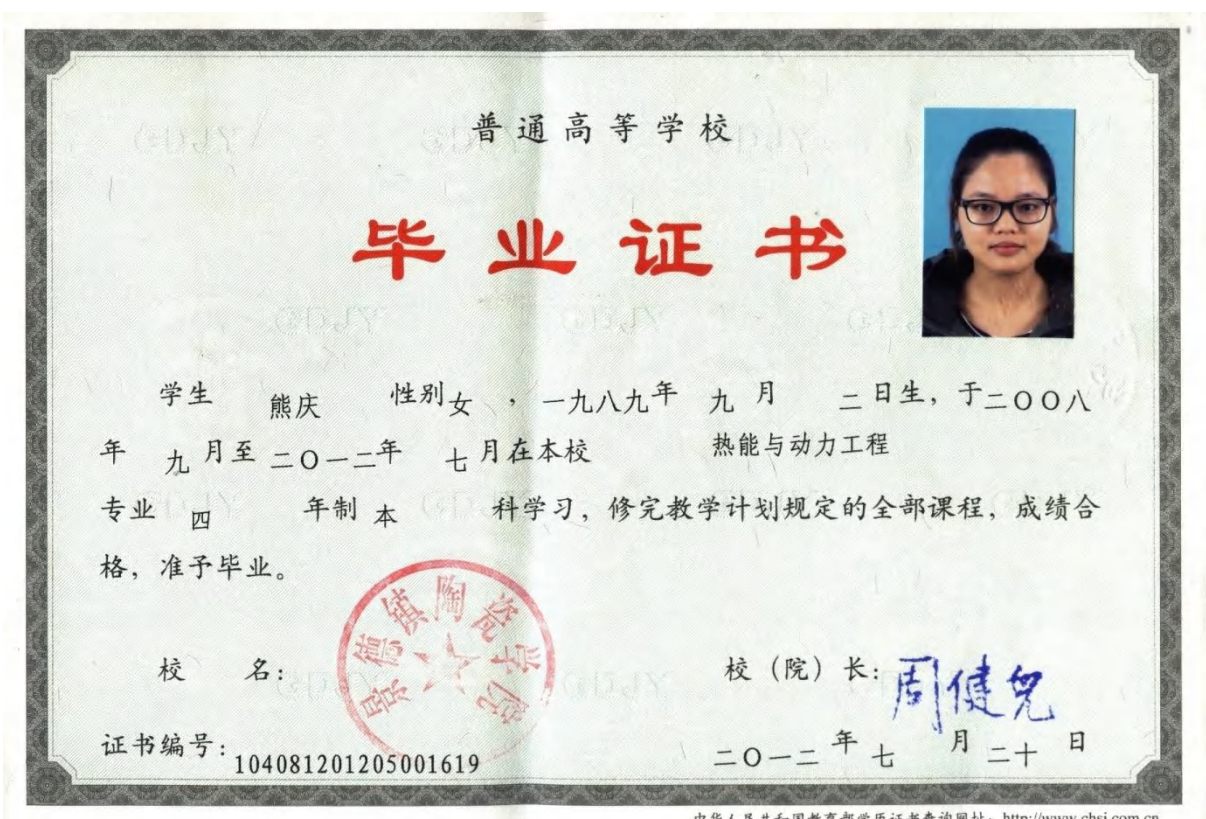 普通高等学校
毕业证书
学生 熊庆 性别女，一九八九年 九月 二日生，于二〇〇八
年 九月至二〇一二年 七月在本校 热能与动力工程
专业 四 年制 本 科学习，修完教学计划规定的全部课程，成绩合
格，准予毕业。
景德镇陶瓷学院
校 名：
校（院）长：周健儿
证书编号：104081201205001619
二〇一二年七月二十日
中华人民共和国教育部学历证书查询网址：http://www.chsi.com.cn